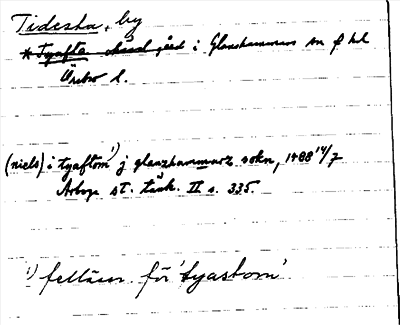 Tidesta, by
*Tyafta gård i Glanshammars sn o hd
Örebro l.
(niels) i tyaftom¹⁾ j glanzhammarz sokn, 1488 14/7
Arboga st. tänk. II s. 335.
¹⁾ felläsn. för 'tyastom'